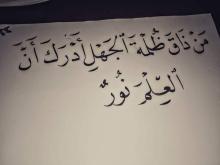 مَنْ ذَاقَ ظُلْمَةَ الْجَهْلِ أَدْرَكَ أَنَّ
الْعِلْمَ نُورٌ